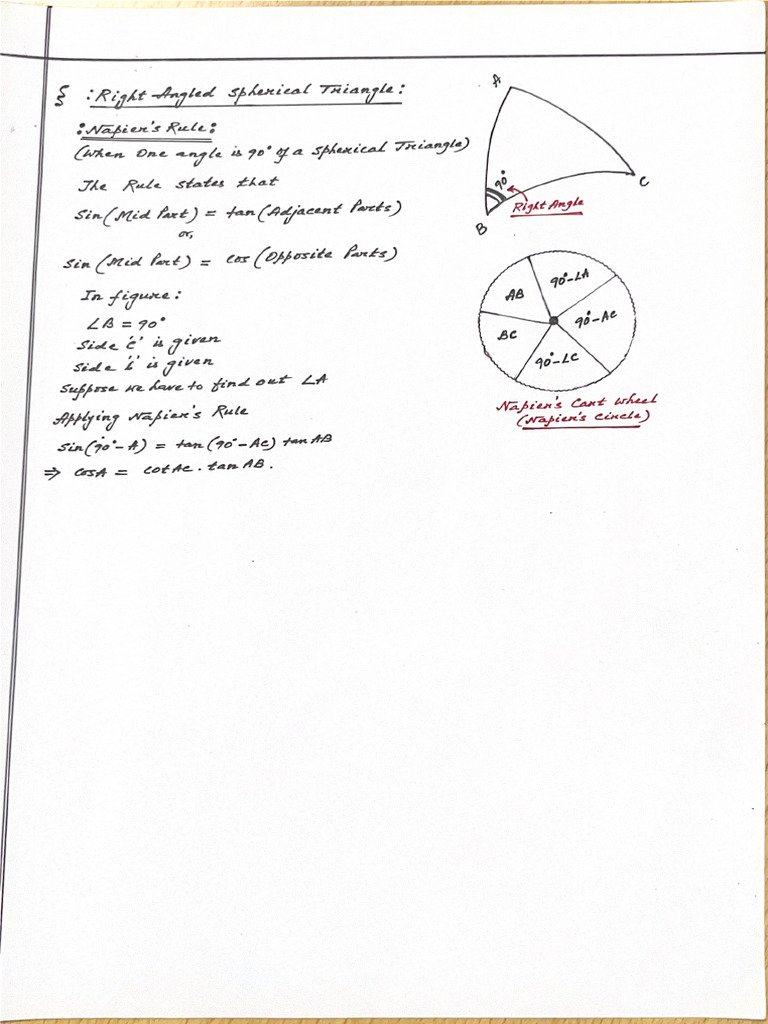 § : Right Angled Spherical Triangle :
: Napier's Rule :
(When One angle is 90° of a Spherical Triangle)
The Rule states that
Sin (Mid Part) = tan (Adjacent Parts)
or,
Sin (Mid Part) = Cos (Opposite Parts)
In figure :
∠B = 90°
Side 'c' is given
Side 'b' is given
Suppose we have to find out ∠A
Applying Napier's Rule
Sin(90° - A) = tan(90° - AC) tanAB
⇒ CosA = CotAC . tanAB.
A
90°
C
Right Angle
B
AB
90°-∠A
90°-AC
BC
90°-∠C
Napier's Cart Wheel
(Napier's Circle)